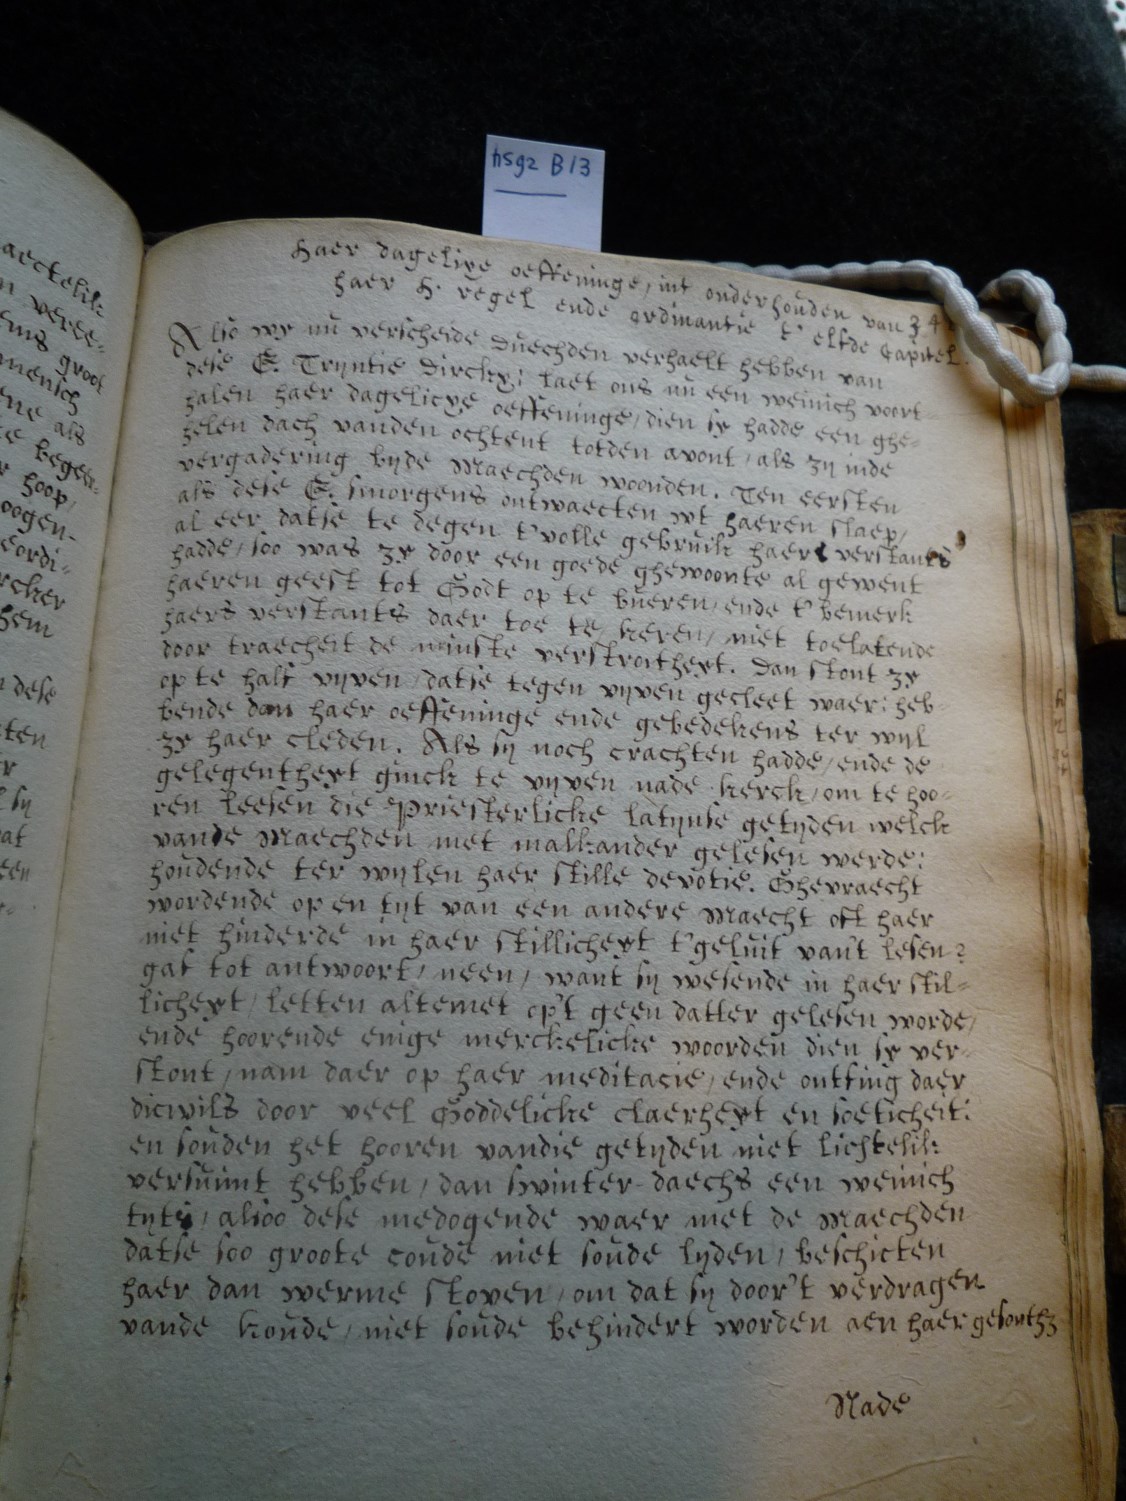 hsgz B13
Haer dagelixe oeffeninge, int onderhouden van 34
haer H. regel ende ordinantie t' elfde Capitel.
Also wy nu verscheide duechden verhaelt hebben van
dese E. Tryntie Dircks: laet ons nu een weinich voort-
halen haer dagelicxe oeffeninge, dien sy hadde een ghe-
helen dach vanden ochtent totden avont, als zy inde
vergadering byde Maechden woonden. Ten eersten
als dese E. smorgens ontwaecten wt haeren slaep,
al eer datse te degen t' volle gebruik haers verstants
hadde, soo was zy door een goede ghewoonte al gewent
haeren geest tot Godt op te bueren, ende t' bemerk
haers verstants daer toe te keren, niet toelatende
door traecheit de minste verstroitheyt. Dan stont zy
op te half vyven, datse tegen vyven gecleet waer: heb-
bende dan haer oeffeninge ende gebedekens ter wyl
zy haer cleden. Als sy noch crachten hadde, ende de
gelegentheyt ginck te vyven nade kerck, om te hoo-
ren leesen die Priesterlicke latynse getyden welck
vande Maechden met malkander gelesen werde:
houdende ter wylen haer stille devotie. Ghevraecht
wordende op en tyt van een andere Maecht oft haer
niet hinderde in haer stillicheyt t' geluit vant lesen?
gaf tot antwoort, neen, want sy wesende in haer stil-
licheyt, letten altemet op't geen datter gelesen worde,
ende hoorende enige merckelicke woorden dien sy ver-
stont, nam daer op haer meditacie, ende ontfing daer
dicwils door veel Goddelicke claerheyt en soeticheit:
en souden het hooren vandie getyden niet lichtelik
versuimt hebben, dan swinter-daechs een weinich
tyts, alsoo dese medogende waer met de Maechden
datse soo groote coude niet soude lyden, beschicten
haer dan werme stoven, om dat sy door't verdragen
vande koude, niet soude behindert worden aen haer
Nade